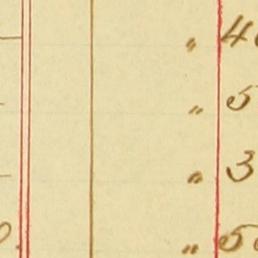 " 4
" 5
" 3
" 5